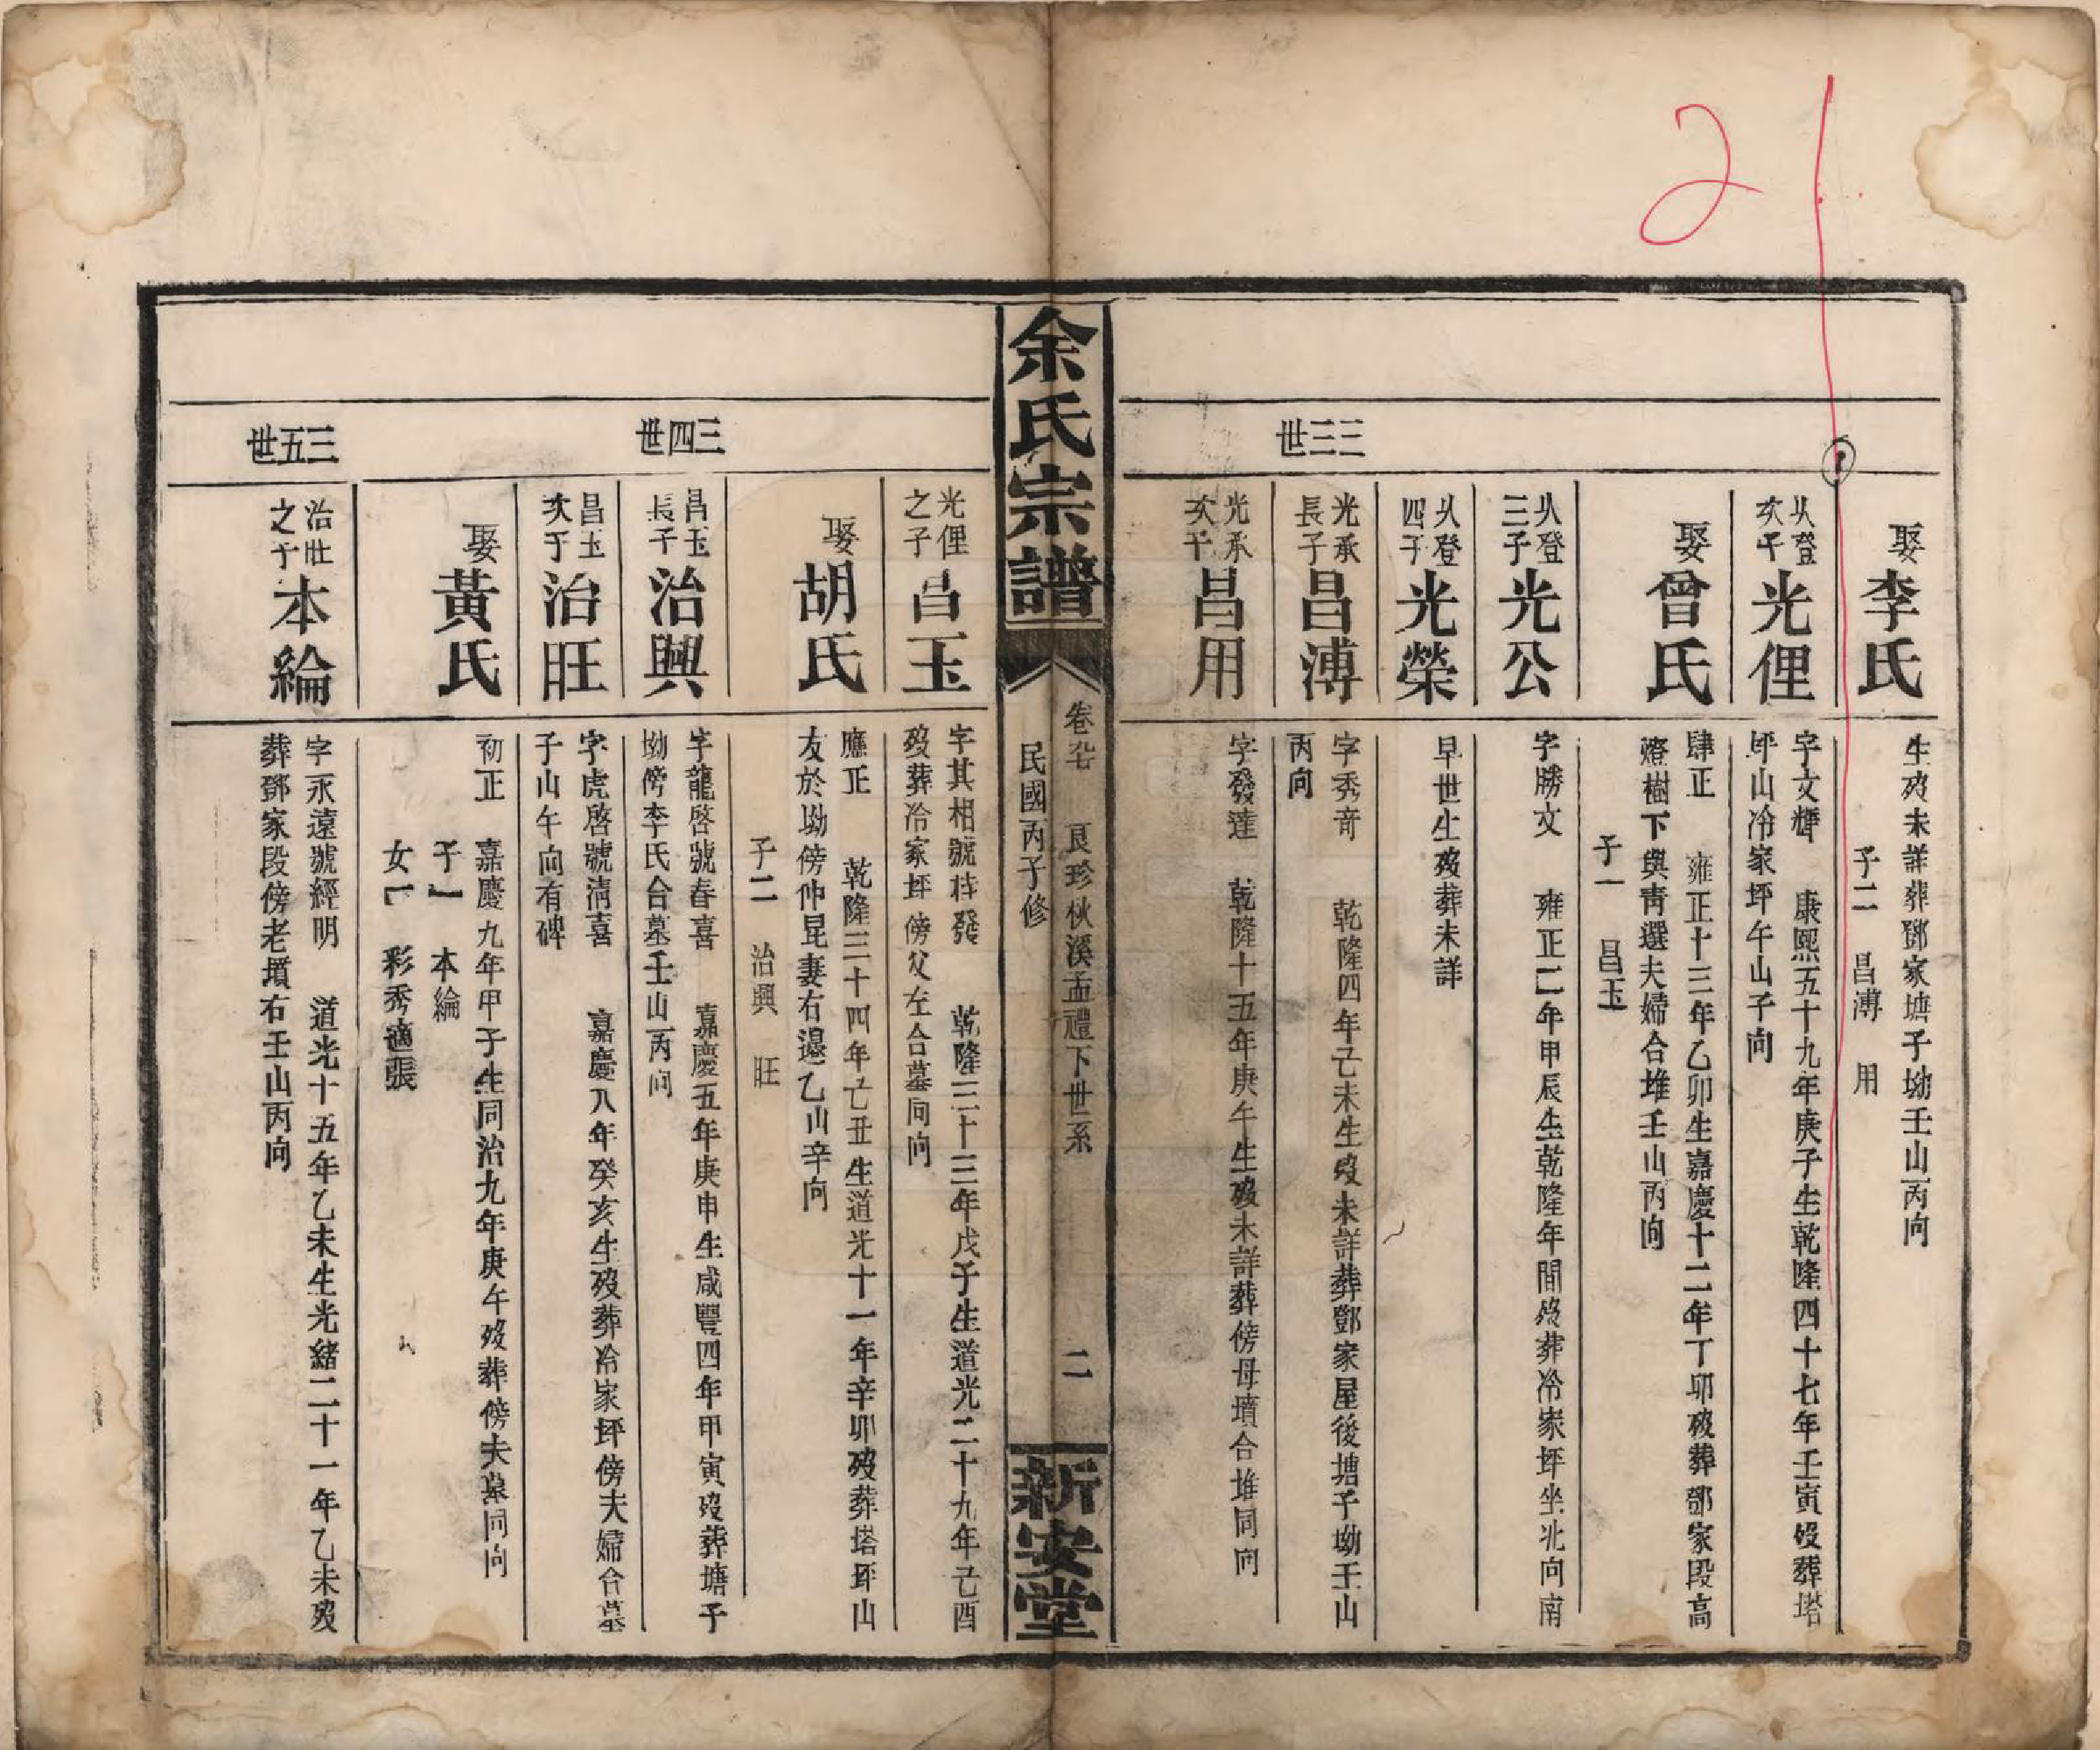 21
三三世
娶李氏
生歿未詳葬鄧家塘子坳壬山丙向
子二 昌溥 用
从登次子光俚
字文輝 康熙五十九年庚子生乾隆四十七年壬寅歿葬塔
坪山冷家坪午山子向
娶曾氏
肆正 雍正十三年乙卯生嘉慶十二年丁卯歿葬鄧家段高
燈樹下與靑選夫婦合堆壬山丙向
子一 昌玉
从登三子光公
字勝文 雍正二年甲辰生乾隆年間歿葬冷家坪坐北向南
从登四子光榮
早世生歿葬未詳
光承長子昌溥
字秀奇 乾隆四年己未生歿未詳葬鄧家屋後塘子坳壬山
丙向
光承次子昌用
字發達 乾隆十五年庚午生歿未詳葬傍母墳合堆同向
余氏宗譜
卷 良珍秋溪孟禮下世系 二
民國丙子修
新安堂
光俚之子昌玉
字其相號梓發 乾隆三十三年戊子生道光二十九年己酉
歿葬冷家坪傍父左合墓同向
娶胡氏
應正 乾隆三十四年己丑生道光十一年辛卯歿葬塔坪山
友於坳傍仲昆妻右邊乙山辛向
子二 治興 旺
三四世
昌玉長子治興
字龍啓號春喜 嘉慶五年庚申生咸豐四年甲寅歿葬塘子
坳傍李氏合墓壬山丙向
昌玉次子治旺
字虎啓號淸喜 嘉慶八年癸亥生歿葬冷家坪傍夫婦合墓
子山午向有碑
娶黃氏
初正 嘉慶九年甲子生同治九年庚午歿葬傍夫墓同向
子一 本綸
女一 彩秀適張
三五世
治旺之子本綸
字永遠號經明 道光十五年乙未生光緒二十一年乙未歿
葬鄧家段傍老墳右壬山丙向